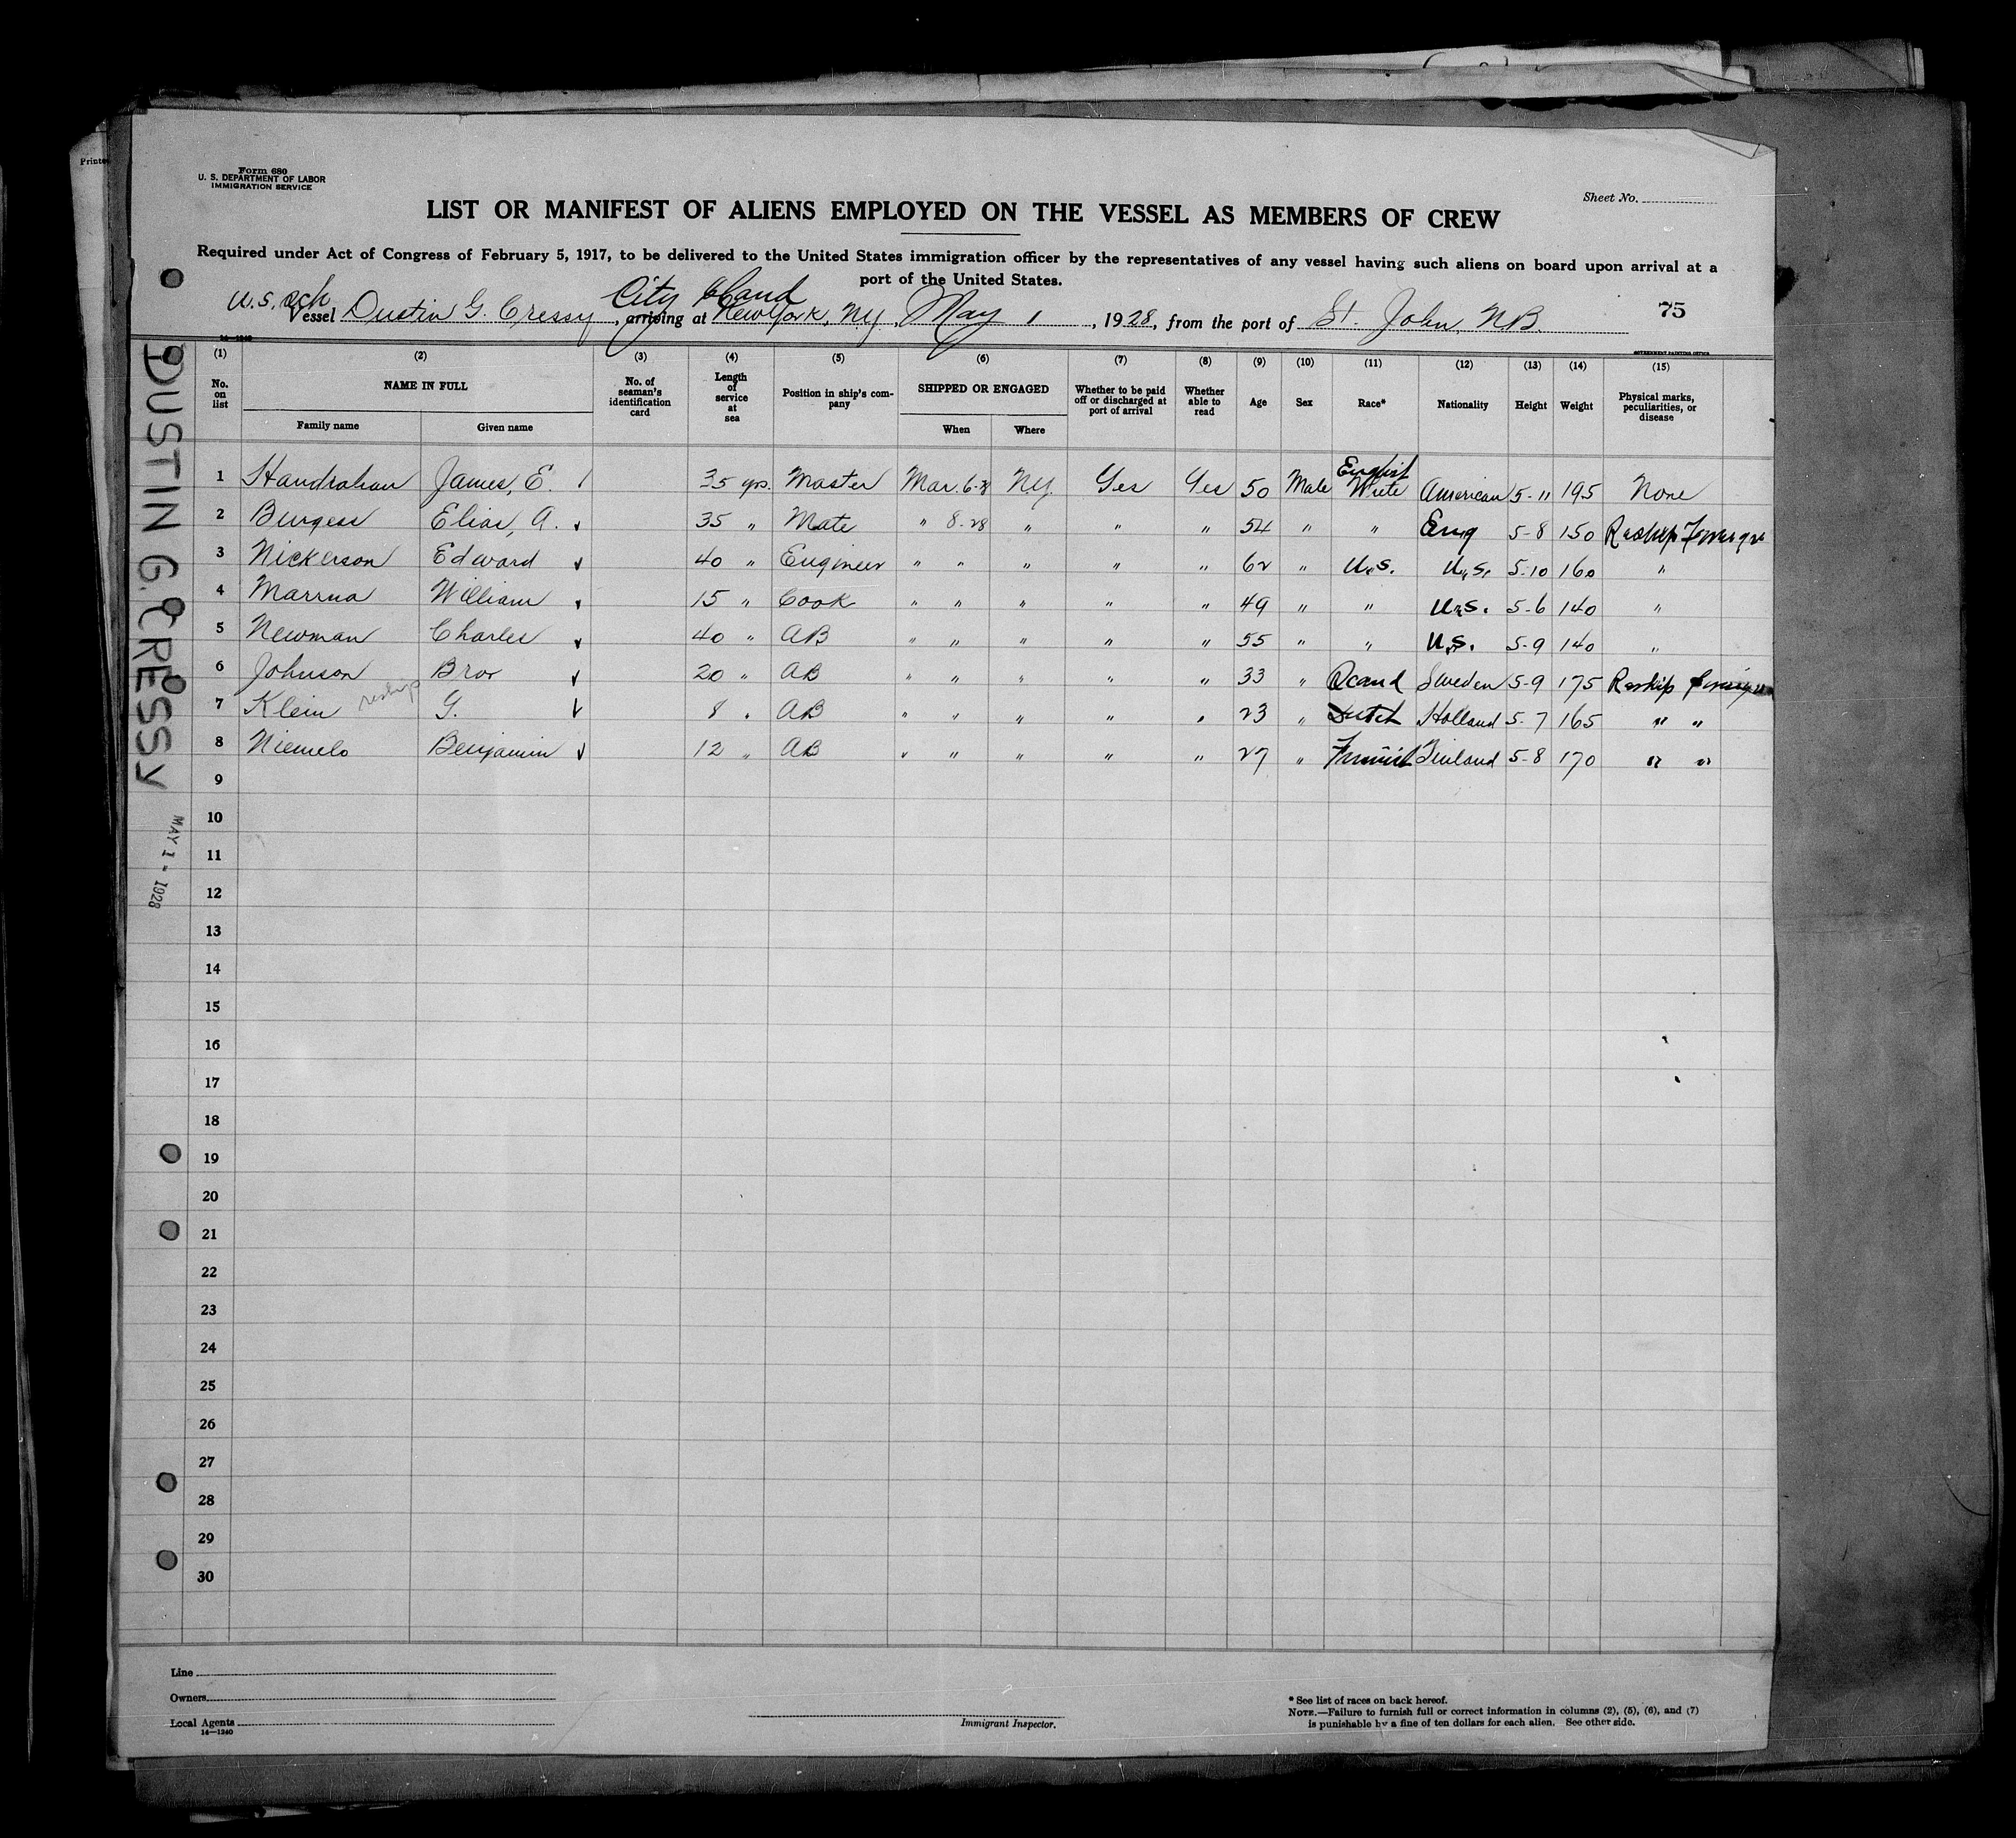 Printe
Form 680
U. S. DEPARTMENT OF LABOR
IMMIGRATION SERVICE
Sheet No.
LIST OR MANIFEST OF ALIENS EMPLOYED ON THE VESSEL AS MEMBERS OF CREW
Required under Act of Congress of February 5, 1917, to be delivered to the United States immigration officer by the representatives of any vessel having such aliens on board upon arrival at a
port of the United States.
U.S. Sch City Island
Vessel Dustin G. Cressy, arriving at New York, NY, May 1, 1928, from the port of St. John, NB. 75
14—1240 GOVERNMENT PRINTING OFFICE
(1) (2) (3) (4) (5) (6) (7) (8) (9) (10) (11) (12) (13) (14) (15)
No. on list NAME IN FULL Family name Given name No. of seaman's identification card Length of service at sea Position in ship's company SHIPPED OR ENGAGED When Where Whether to be paid off or discharged at port of arrival Whether able to read Age Sex Race* Nationality Height Weight Physical marks, peculiarities, or disease
English
1 Handrahan James, E. / 35 yrs. Master Mar. 6-28 NY. Yes Yes 50 Male White American 5-11 195 None
2 Burgess Elias, A. ✓ 35 " Mate " 8-28 " " " 54 " " Eng 5-8 150 Reship
3 Nickerson Edward ✓ 40 " Engineer " " " " " 62 " U.S. U.S. 5-10 160 "
4 Marrua William ✓ 15 " Cook " " " " " 49 " " U.S. 5-6 140 "
5 Newman Charles ✓ 40 " AB " " " " " 55 " " U.S. 5-9 140 "
6 Johnson Bror ✓ 20 " AB " " " " " 33 " Scand Sweden 5-9 175 Reship foreign
reship
7 Klein G. ✓ 8 " AB " " " " " 23 " Dutch Holland 5-7 165 " "
8 Niemelo Benjamin ✓ 12 " AB " " " " " 27 " Finnish Finland 5-8 170 " "
9
10
11
12
13
14
15
16
17
18
19
20
21
22
23
24
25
26
27
28
29
30
DUSTIN G. CRESSY
MAY 1 - 1928
Line
Owners
Local Agents
14—1240
Immigrant Inspector.
* See list of races on back hereof.
NOTE.—Failure to furnish full or correct information in columns (2), (5), (6), and (7)
is punishable by a fine of ten dollars for each alien. See other side.